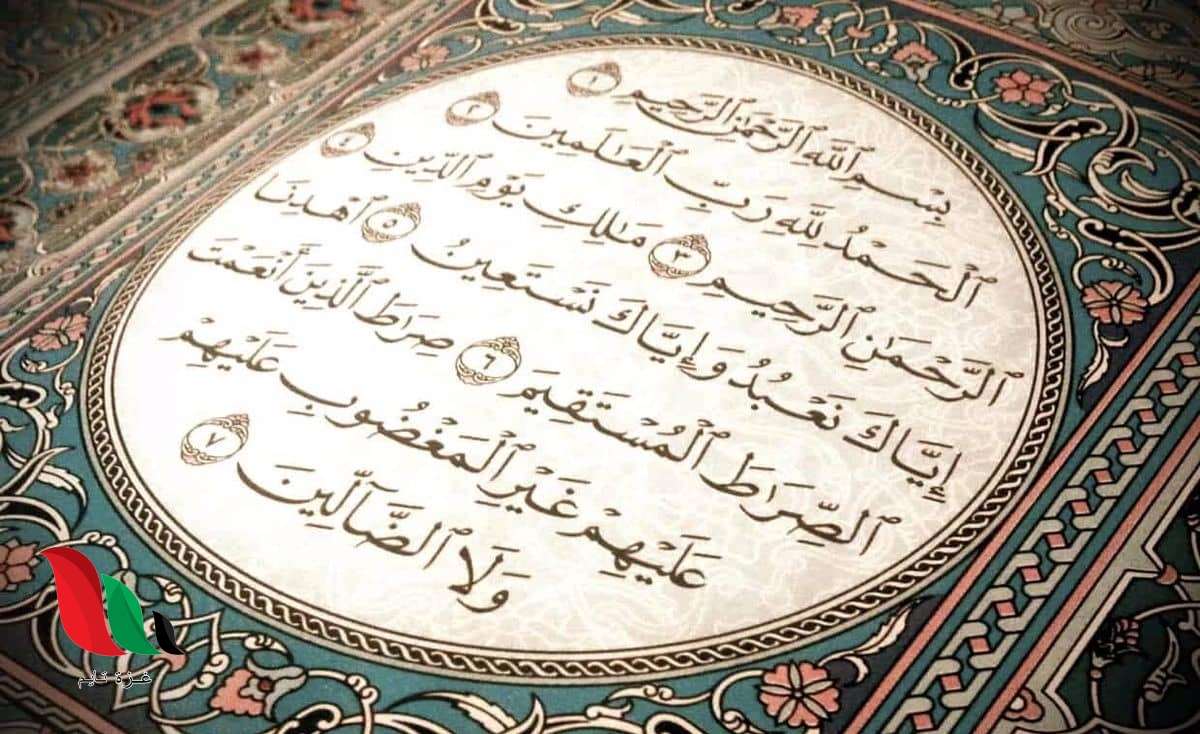 بِسْمِ ٱللَّهِ ٱلرَّحْمَٰنِ ٱلرَّحِيمِ ١
ٱلْحَمْدُ لِلَّهِ رَبِّ ٱلْعَٰلَمِينَ ٢
ٱلرَّحْمَٰنِ ٱلرَّحِيمِ ٣ مَٰلِكِ يَوْمِ ٱلدِّينِ ٤
إِيَّاكَ نَعْبُدُ وَإِيَّاكَ نَسْتَعِينُ ٥ ٱهْدِنَا
ٱلصِّرَٰطَ ٱلْمُسْتَقِيمَ ٦ صِرَٰطَ ٱلَّذِينَ أَنْعَمْتَ
عَلَيْهِمْ غَيْرِ ٱلْمَغْضُوبِ عَلَيْهِمْ
وَلَا ٱلضَّآلِّينَ ٧
غزة تايم